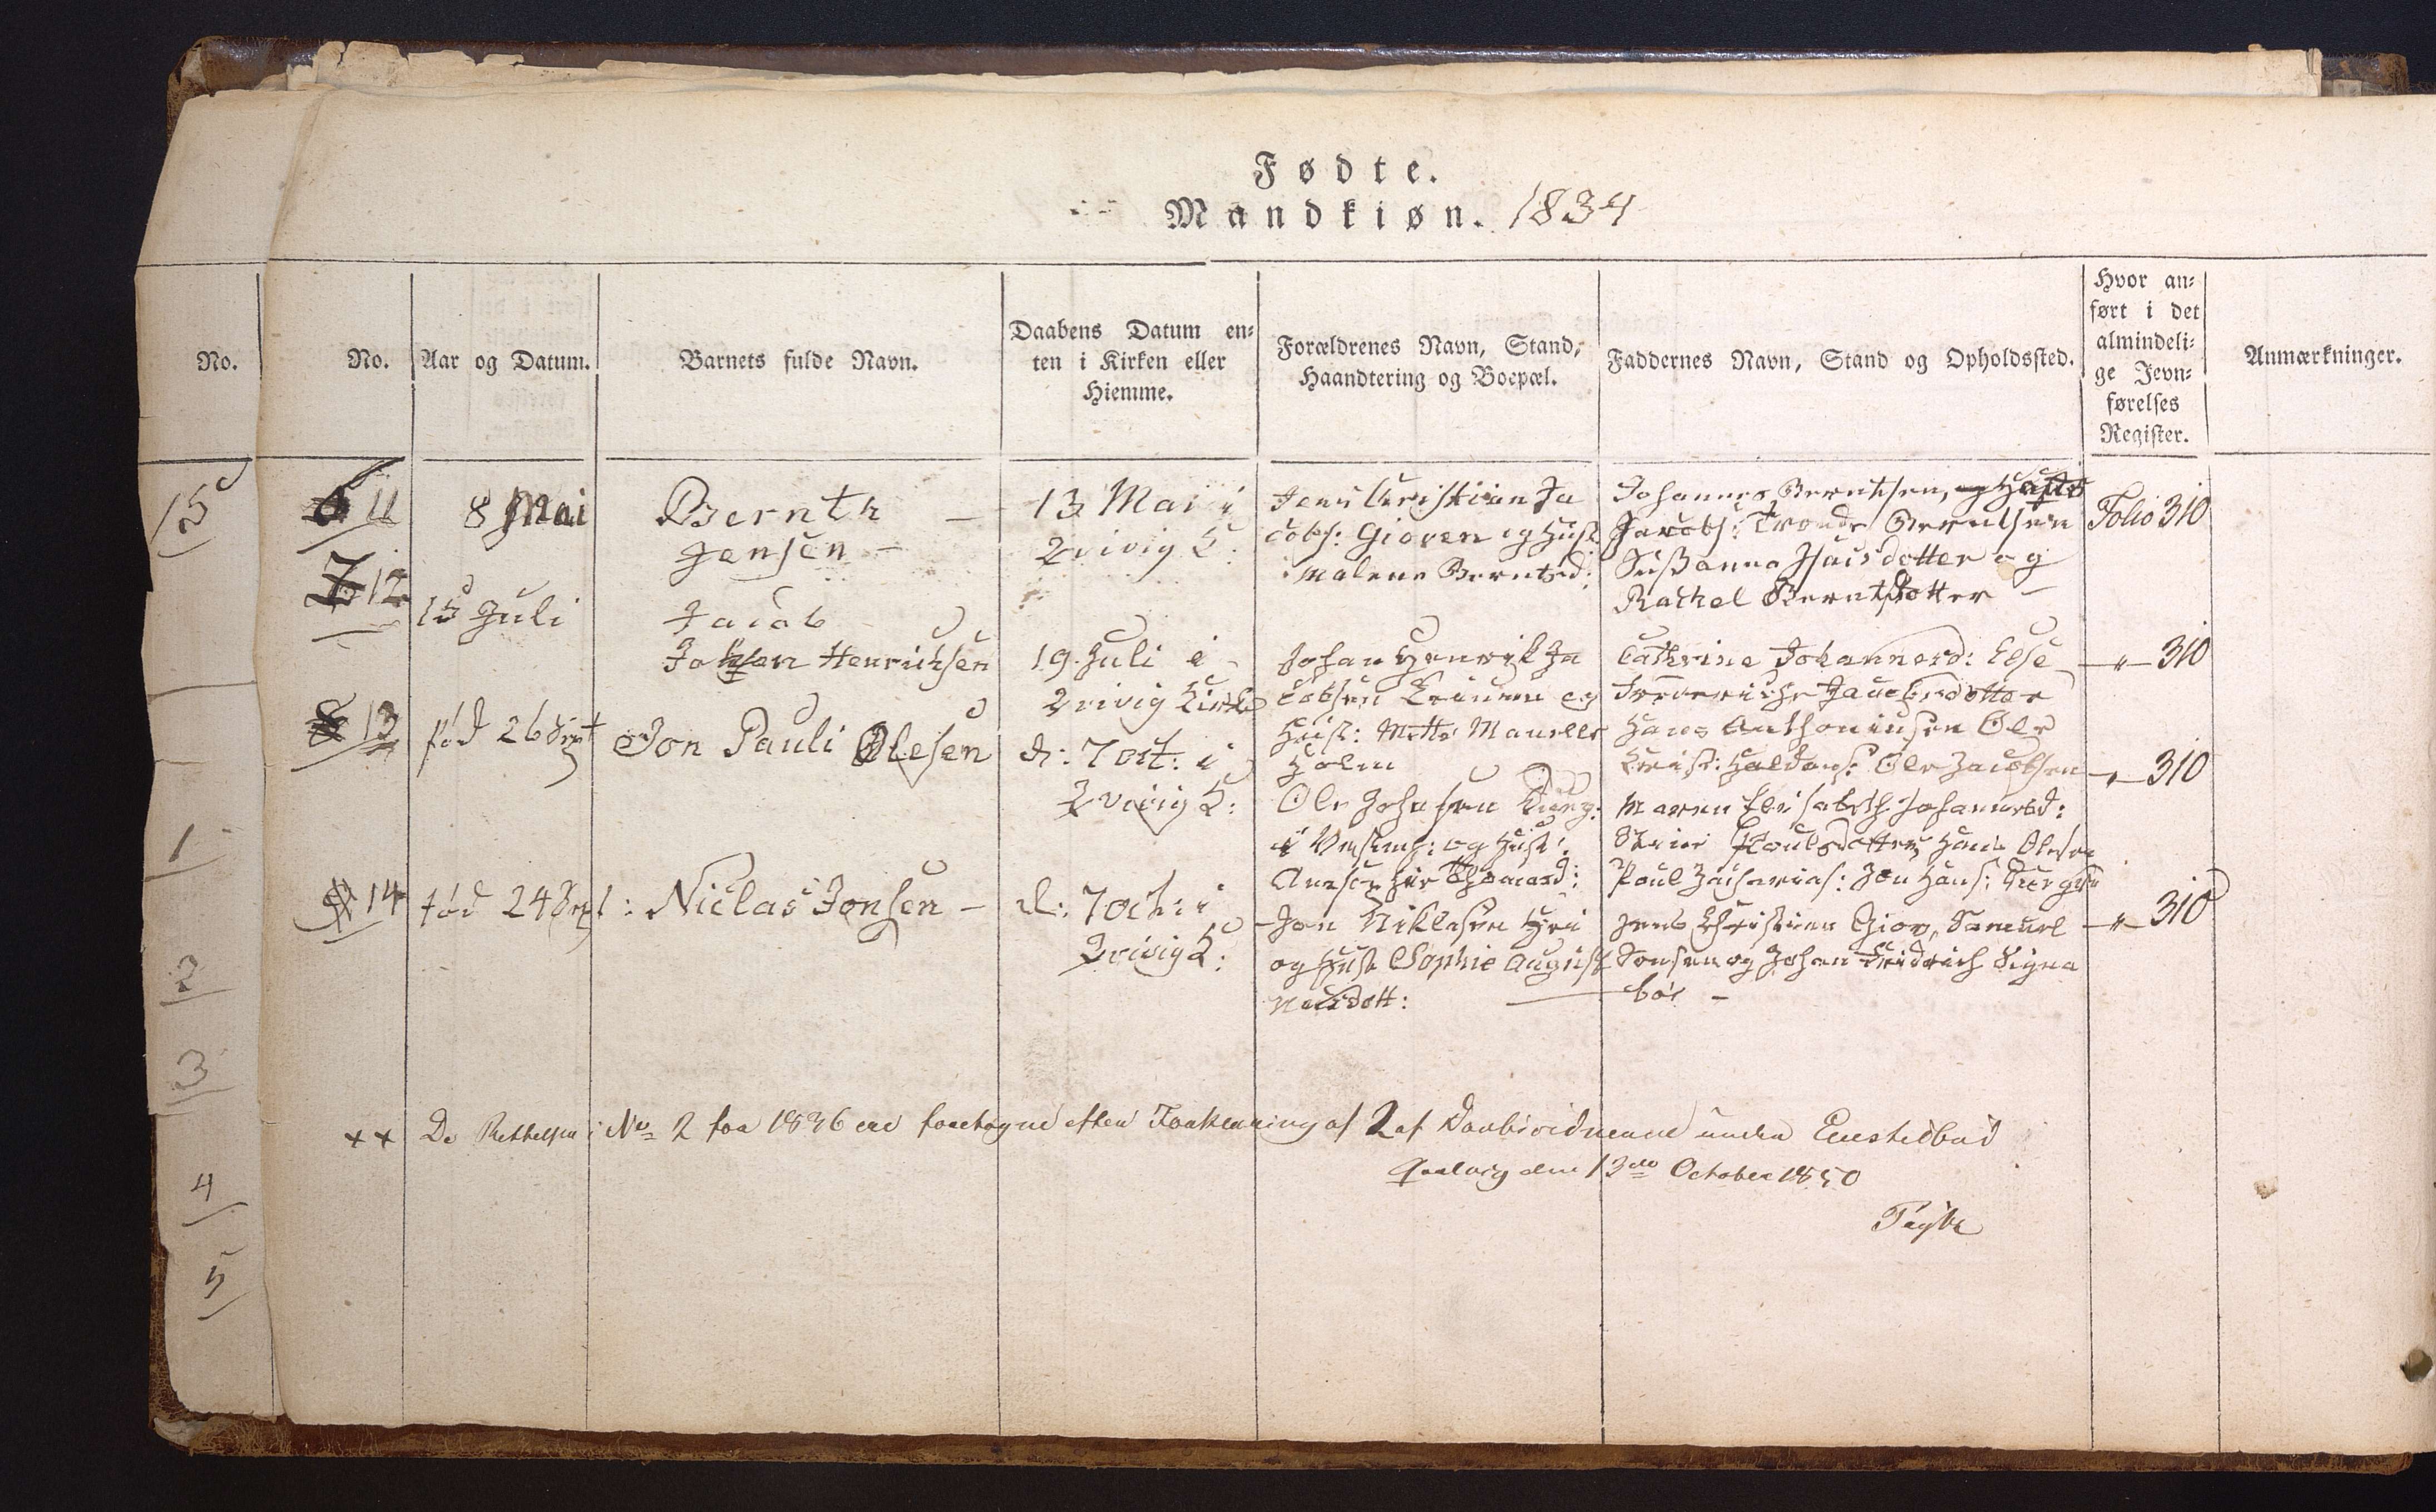 Fødte.
Mandkiøn. 1834
No.
No.
Aar og Datum.
Barnets fulde Navn.
Daabens Datum en-
ten i Kirken eller
Hiemme.
Forældrenes Navn, Stand,
Haandtering og Boepæl.
Faddernes Navn, Stand og Opholdssted.
Hvor an-
ført i det
almindeli-
ge Jevn-
førelses
Register.
Anmærkninger.
15
11
8 Mai
Bernth
Jensen
13 Mai i
Qvivig K:
Jens Christian Ja
cobs: Gioven og Hust
Malene Berntsd:
Johannes Berntsen,
Jacobs: Trondr Berntsen
Susanna Hansdotter og
Rachel Berntsdotter
Folio 310
12
15 Juli
Jacob
Johan Henrichsen
19 Juli i
Qvivig Kirke
Johan Henrik Ja
cobsen og
Hust: Mette Manelle
Holm
Cathrine Johannesd: Else
Jacobsdotter
Hans Anthoniusen Ole
310
13
fød 26 Sept
Jon Pauli Olesen
d: 7 oct: i
Qvivig K:
Ole Johnsen
i Vestmh: og Hust:
Thomasd:
Haldans: Ole Jacobsen
Maren Elisabeth Johannesd:
Poulsdotter, Hans Olesen
Poul Zacharias: Jon Hans:
310
14
fød 24 Sept: Niclas Jonsen
d: 7 oct: i
Qvivig K:
Jon Niklasen
og Hust Sophie August
Nielsdott:
Jens Christian Giov, Samuel
Jonsen og Johan Fridrich Signa
bøe
310
1
2
3
4
5
xx De Rettelser i No 2 for 1836 ere foretagne efter Forklaring af 2 af Daabsvidnerne under
Qvalvig den 13de October 1850